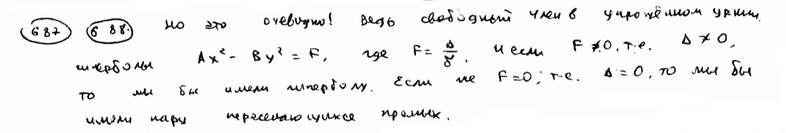 687 688. Но это очевидно! Ведь свободный член в упрощённом урнии
гиперболы Ax² - By² = F, где F = Δ/δ. И если F ≠ 0, т.е. Δ ≠ 0,
то мы бы имели гиперболу. Если же F = 0, т.е. Δ = 0, то мы бы
имели пару пересекающихся прямых.